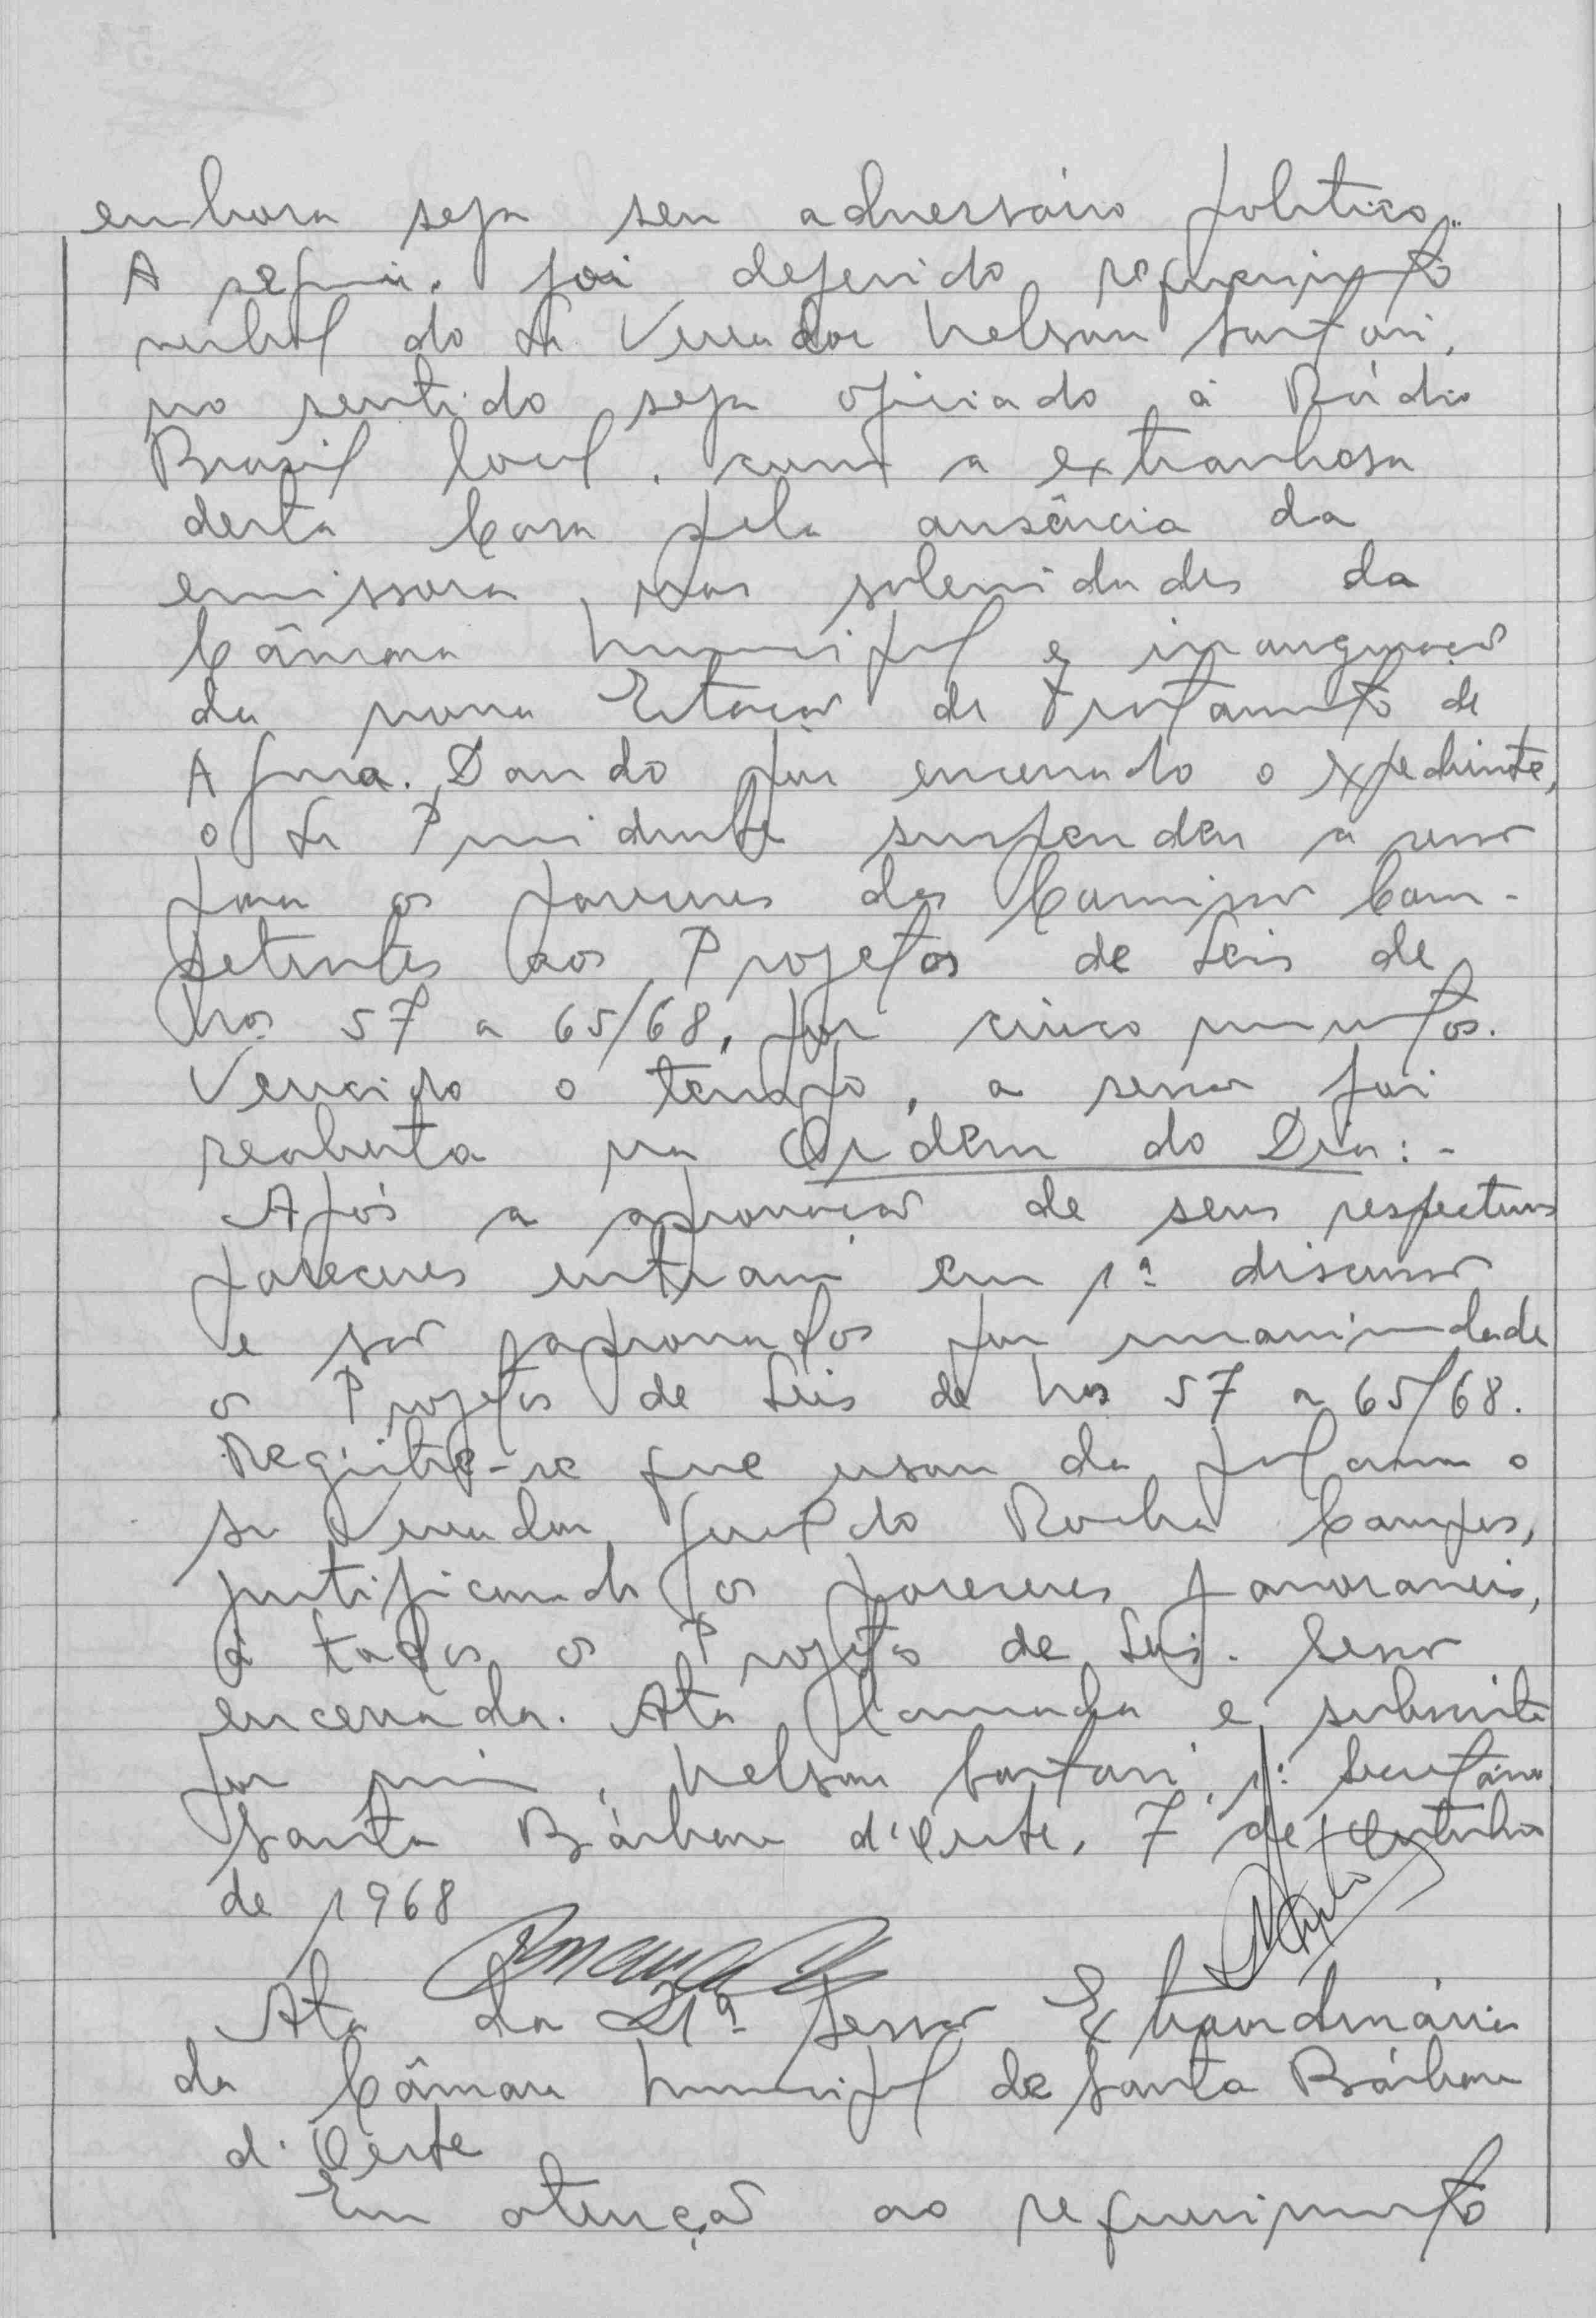 embora seja seu adversário politico.
A seguir, foi deferido requerimento
verbal do Sr. Vereador Nelson Sartori,
no sentido seja oficiado à Rádio
Brasil local, com a extranhesa
desta Casa pela ausência da
emissora, nas solenidades da
Câmara Municipal e inauguração
da nova Estação de Tratamento de
Agua. Dando por encerrado o expediente,
o Sr Presidente suspendeu a sessão
para os pareceres das Comissões Com-
petentes aos Projetos de Leis de
nos 57 a 65/68, por cinco minutos.
Vencido o tempo, a sessão foi
reaberta na Ordem do Dia:-
Após a aprovação de seus respectivos
pareceres entram em 1ª discussão
e são aprovados por unanimidade
os Projetos de Leis de nos 57 a 65/68.
Registre-se que usou da palavra o
sr Vereador da Rocha Campos,
justificando os pareceres favoraveis,
a todos os Projetos de Leis. Sessão
encerrada. Ata lavrada e subscrita
por mim, Nelson Sartori, 1º Secretário
Santa Bárbara d'Oeste, 7 de Outubro
de 1968
Ata da 21ª Sessão Extraordinária
da Câmara Municipal de Santa Bárbara
d'Oeste
Em atenção ao requerimento